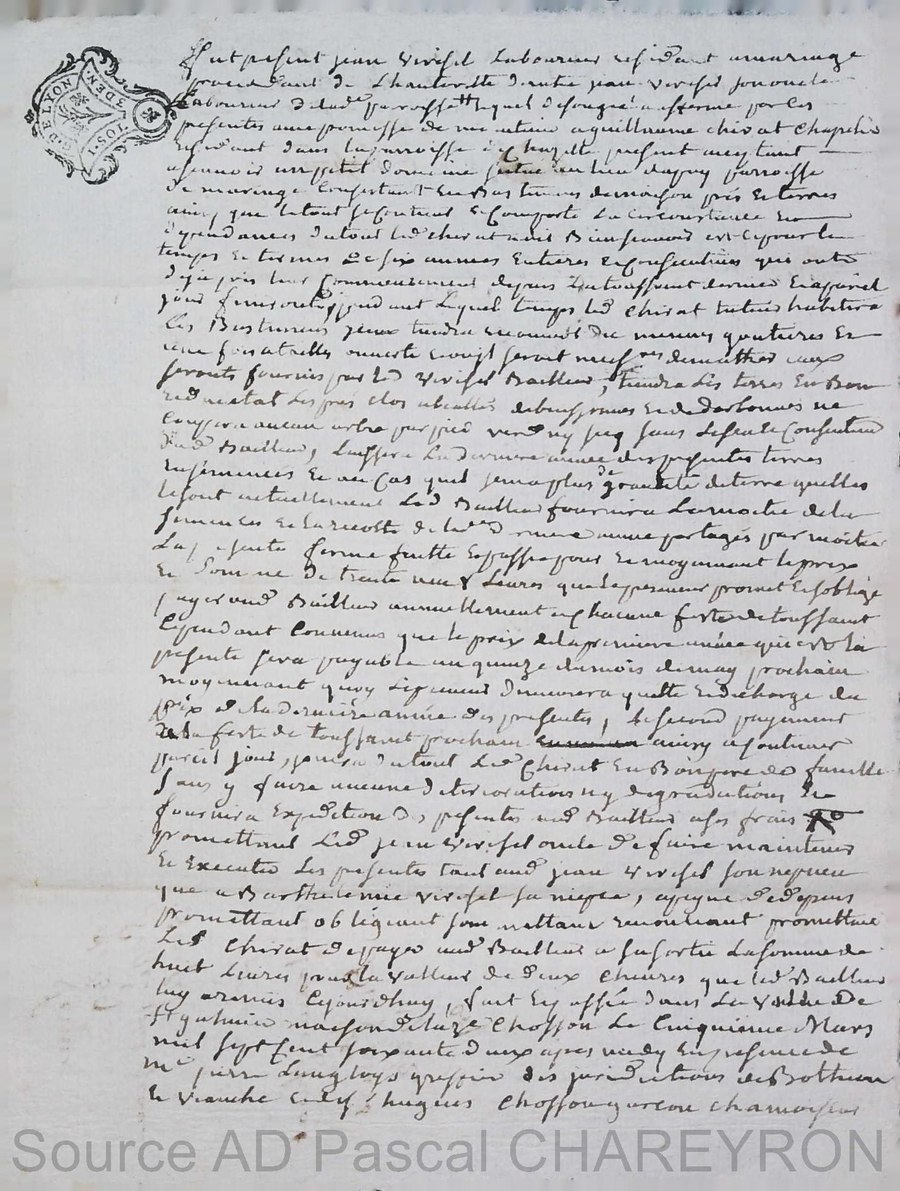 G. DE LYON
3 DEN.
1 SOL.
fut present jean virissel Laboureur residant a maringe
procedant de L'hautorité de autre jean virissel son oncle
Laboureur de lade parroisse lequel de son gré a afferme par les
presentes avec promesse de maintenir a guillaume chirat Chapelier
residant dans la parroisse de Chazelle present acceptant
ascavoir un petit domeine situé au lieu dupuy parroisse
de maringe Consistant En Bastiments de maison prés et terres
ainsy que le tout se contient et Comporte La circonstance et
dependances du tout led chirat a dit Bien scavoir et ce pour le
temps et termes de six annees Entieres et consecutives qui ont
deja pris leur Commencement depuis La toussaint derniere et a pareil
jour finiront pendant Lequel temps led chirat habitera
Les Bastiments jceux tiendra de menues goutieres et
une fois a tuilles ouverte
seronts fournis par led virissel Bailleur, tiendra Les terres En Bon
et du etat Les prés clos de buissonnes et de darbonnes ne
Couppera aucun arbre par pied verd ny seq sans Le sceu et Consentement
dud Bailleur, Laissera La derniere année des presentes terres
Ensemencées et au Cas quil sema plus de quantité de terre quelles
le sont actuellement Led Bailleur fournira La moitié de la
semences et La recolte de lade derniere année partagés par moitié
La presente ferme faitte et passée pour et moyennant le prix
et somme de trente neuf Livres que le preneur promet et soblige
payer aud Bailleur annuellement a Chacune feste de toussaint
Cependant Convenus que le prix de la premiere année qui est la
presente sera payable au quinze du mois de may prochain
moyennant quoy Le preneur demeurera quitte et decharge du
prix de la derniere année des presentes, Le second payement
a la feste de toussaint prochain ainsy a continuer
pareil jour, jouira du tout Led Chirat En Bon pere de famille
sans y faire aucune deteriorations ny degradations et
fournira Expedition des presentes aud Bailleur a ses frais
promettant Led jean virissel oncle de faire maintenir
et Executer Les presentes tant aud jean virissel son nepveu
que a Barthelemie virissel sa niepce, a peine de depens
promettant obligeant soumettant renonceant promettant
Led Chirat de payer aud Bailleur a sa sortie La somme de
huit Livres pour la valleur de deux Chevres que led Bailleur
luy a remis Cejourdhuy, fait et passée dans La ville De
St galmier maison de Choffon Le Cinquieme Mars
mil sept cent soixante deux apres midy En presence de
me pierre Langloys greffier des juridictions de Bothéon
et veauche et de sr hugues Choffon garcon chamoiseur
Source AD Pascal CHAREYRON